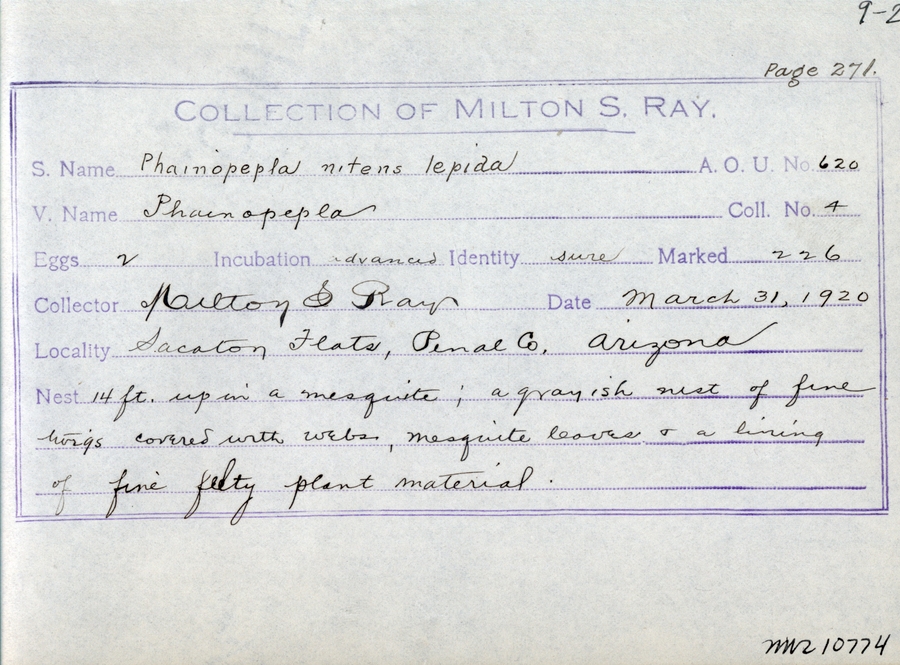 9-2
Page 271.
COLLECTION OF MILTON S. RAY.
S. Name Phainopepla nitens lepida A. O. U. No. 620
V. Name Phainopepla Coll. No. 4
Eggs 2 Incubation advanced Identity sure Marked 226
Collector Milton S Ray Date March 31, 1920
Locality Sacaton Flats, Penal Co. Arizona
Nest 14 ft. up in a mesquite; a grayish nest of fine
twigs covered with webs, mesquite leaves & a lining
of fine felty plant material.
MVZ 10774